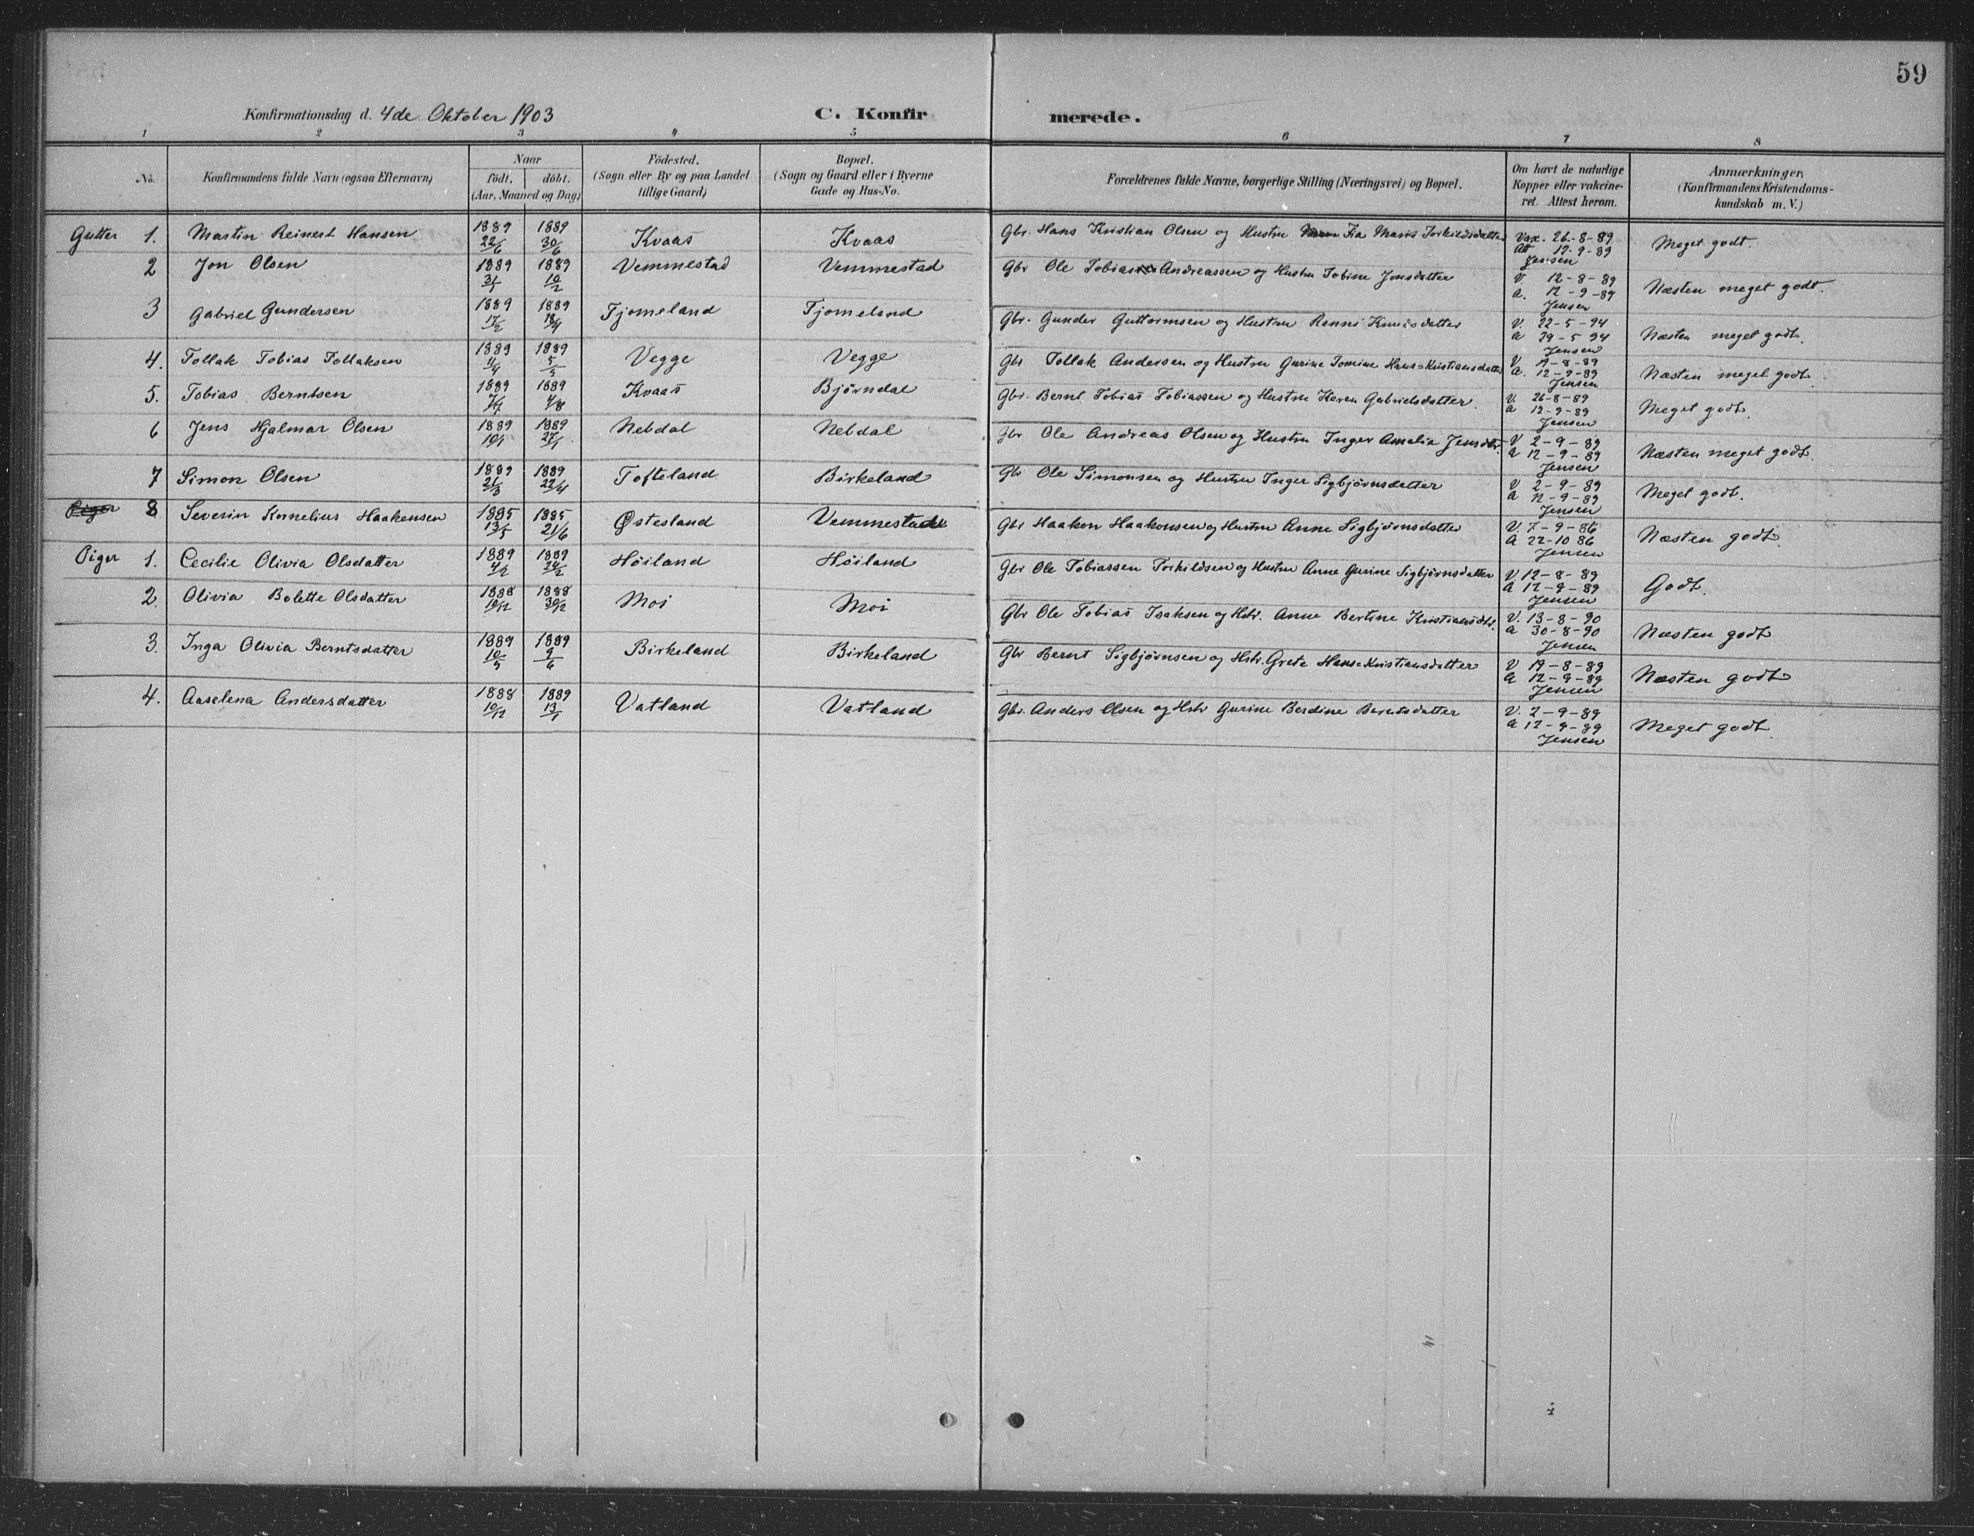 59
Konfirmationsdag d. 4de Oktober 1903 C. Konfirmerede.
1 2 3 4 5 6 7 8
No. Konfirmandens fulde Navn (ogsaa Efternavn) Naar födt. döbt. (Aar, Maaned og Dag) Födested. (Sogn eller By og paa Landet tillige Gaard) Bopæl. (Sogn og Gaard eller i Byerne Gade og Hus-No. Forældrenes fulde Navne, borgerlige Stilling (Næringsvei) og Bopæl. Om havt de naturlige Kopper eller vakcineret. Attest herom. Anmærkninger, (Konfirmandens Kristendomskundskab m. V.)
Gutter 1. Martin Reinert Hansen 1889 22/6 1889 30/6 Kvaas Kvaas Gbr. Hans Kristian Olsen og Hustru Fia Maris Torkildsdatter Vax. 26-8-89 Att 12-9-89 Jensen Meget godt.
2 Jon Olsen 1889 3/1 1889 10/2 Vemmestad Vemmestad Gbr Ole Tobias Andreassen og Hustru Tobine Jonsdatter V. 12-8-89 a. 12-9-89 Jensen Næsten meget godt.
3 Gabriel Gundersen 1889 17/2 1889 18/4 Fjomeland Fjomeland Gbr. Gunder Guttormsen og Hustru Ranni Knutsdatter V. 22-5-94 a 29-5 94 Jensen Næsten meget godt.
4. Tollak Tobias Tollaksen 1889 11/4 1889 5/5 Vegge Vegge Gbr Tollak Andersen og Hustru Gurine Tomine Hans=Kristiansdatter V. 19-8-89 a. 12-9-89 Jensen Næsten meget godt.
5. Tobias Berntsen 1889 7/7 1889 4/8 Kvaas Bjørndal Gbr. Bernt Tobias Tobiassen og Hustru Karen Gabrielsdatter. V. 26-8-89 a 12-9-89 Jensen Meget godt.
6 Jens Hjalmar Olsen 1889 10/1 1889 27/1 Nebdal Nebdal Gbr Ole Andreas Olsen og Hustru Inger Amalia Jensdtr. V 2-9-89 a 12-9-89 Jensen Næsten meget godt.
7 Simon Olsen 1889 21/3 1889 22/4 Tofteland Birkeland Gbr Ole Simonsen og Hustru Inger Sigbjørnsdatter V 2-9-89 A 12-9-89 Jensen Meget godt.
Piger 8 Severin Kornelius Haakensen 1885 13/5 1885 21/6 Østesland Vemmestad Gbr Haakon Haakonsen og Hustru Anne Sigbjørnsdatter V. 7-9-86 A 22-10 86 Jensen Næsten godt
Piger 1. Cecilie Olivia Olsdatter 1889 4/2 1889 24/2 Høiland Høiland Gbr Ole Tobiassen Torkildsen og Hustru Anne Gurine Sigbjørnsdatter V 12-8-89 A 12-9-89 Jensen Godt.
2. Olivia Bolette Olsdatter 1888 10/12 1888 30/12 Moi Moi Gbr Ole Tobias Isaksen og Hstr. Anne Bertine Kristiansdtr. V. 13-8-90 a 30-8-90 Jensen Næsten godt
3. Inga Olivia Berntsdatter 1889 10/5 1889 9/6 Birkeland Birkeland Gbr Bernt Sigbjørnsen og Hstr. Grete Hans=Kristiansdatter V 19-8-89 a 12-9-89 Jensen Næsten godt
4. Aaselena Andersdatter 1888 10/12 1889 13/1 Vatland Vatland Gbr. Anders Olsen og Hstr Gurine Berdine Berntsdatter V. 2-9-89 a 12-9-89 Jensen Meget godt.